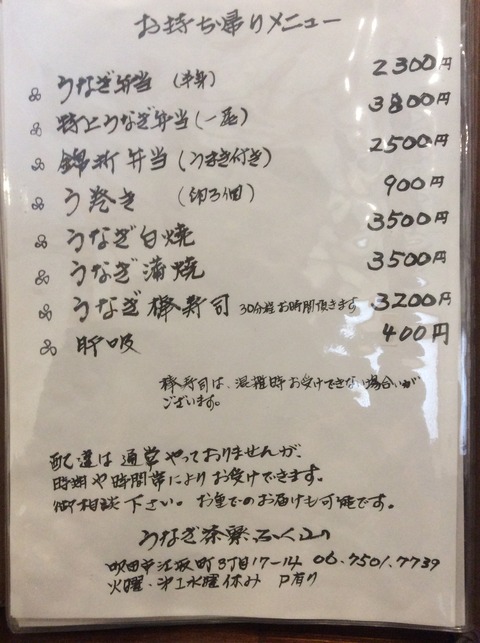 お持ち帰りメニュー
うなぎ弁当 (半身) 2300円
特上うなぎ弁当(一尾) 3800円
錦新弁当(うまき付き) 2500円
う巻き (卵3個) 900円
うなぎ白焼 3500円
うなぎ蒲焼 3500円
うなぎ棒寿司 30分程お時間頂きます 3200円
肝吸 400円
棒寿司は、混雑時お受けできない場合いが
ございます。
配達は通常やっておりませんが、
時期や時間帯によりお受けできます。
御相談下さい。お重でのお届けも可能です。
うなぎ茶寮
吹田市江坂町3丁目17-14 06.7501.7739
火曜・第1水曜休み P有り